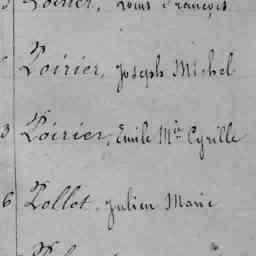 Poirier, Louis François
Poirier, Joseph Michel
3 Poirier, Emile Mie Cyrille
6 Pollot, Julien Marie